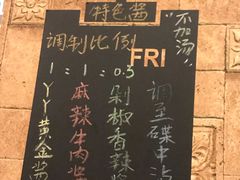 特色酱
"不加汤"
调制比例
FRI
1 : 1 : 0.5
丫丫黄金酱
麻辣牛肉酱
剁椒香辣酱
调至碟中沾